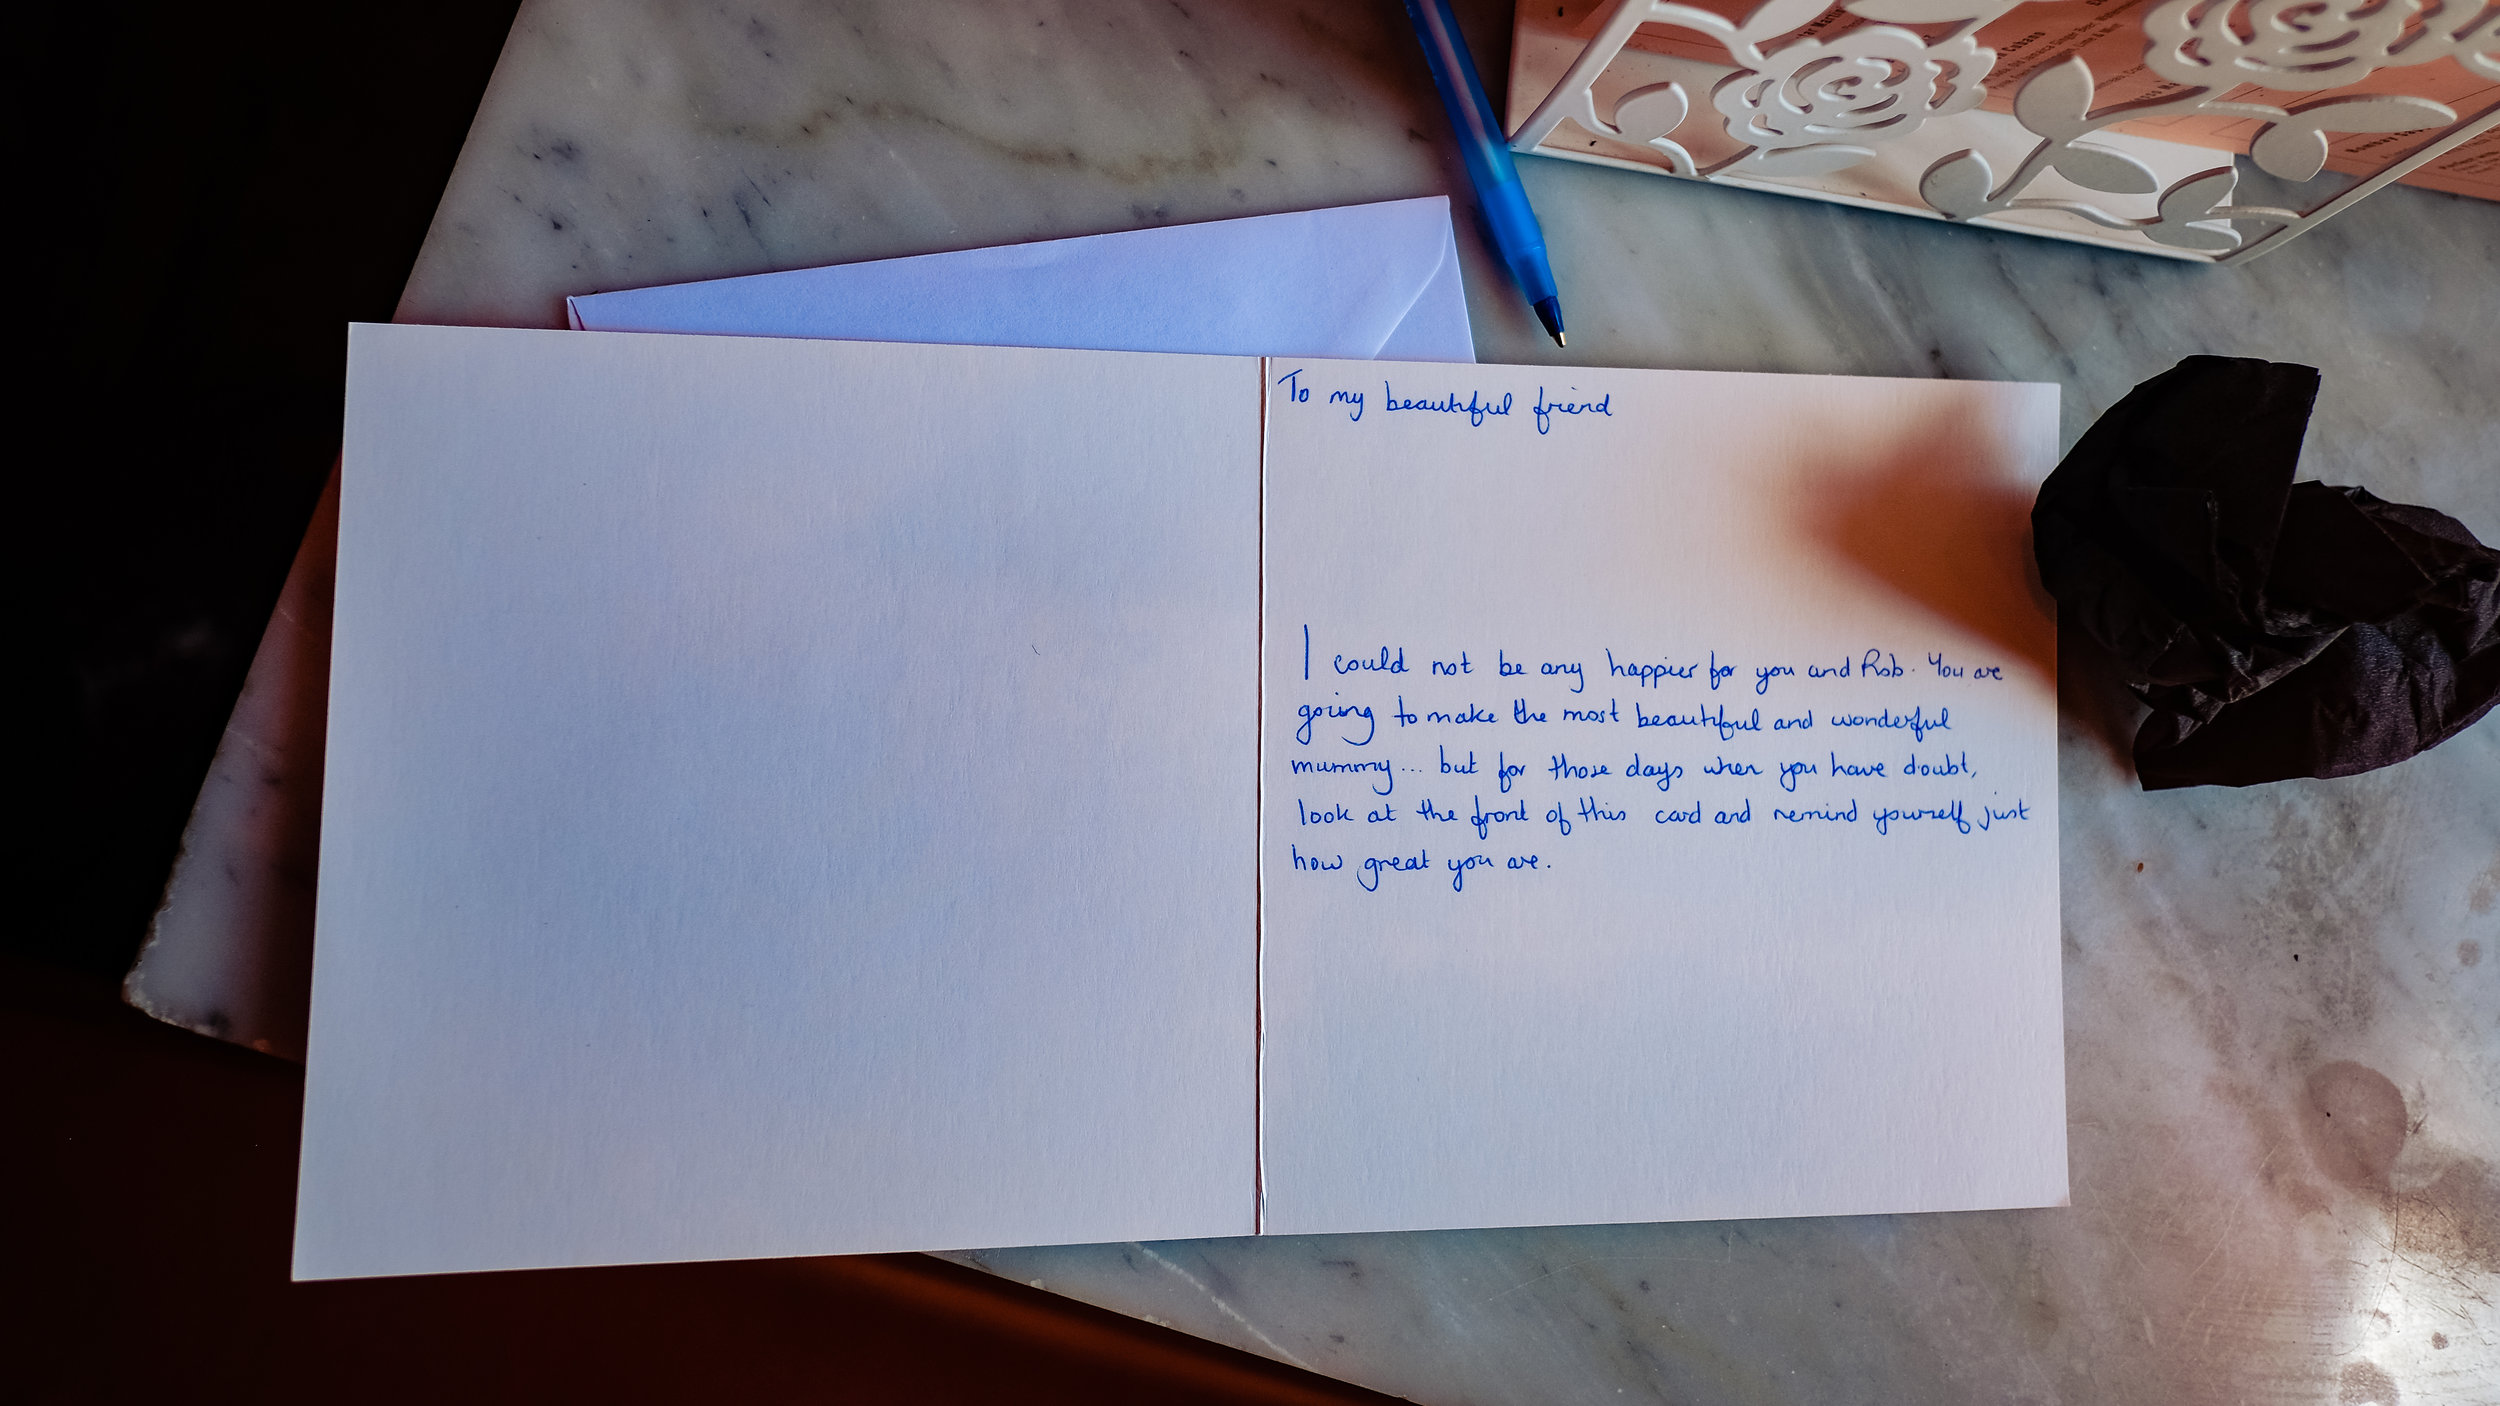 To my beautiful friend
I could not be any happier for you and Rob. You are
going to make the most beautiful and wonderful
mummy... but for those days when you have doubt,
look at the front of this card and remind yourself just
how great you are.